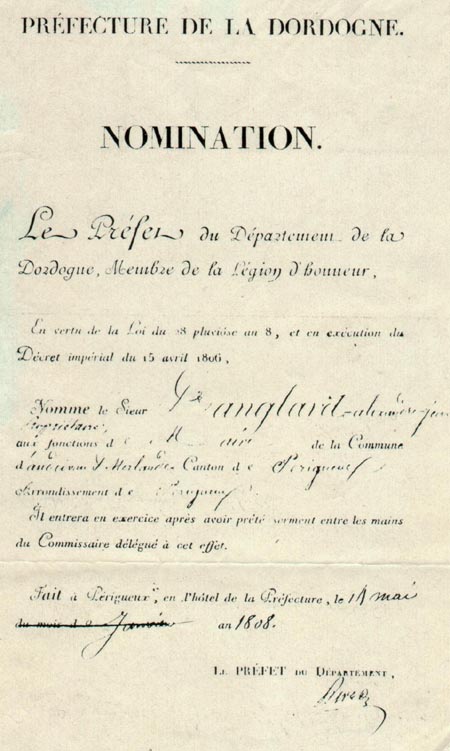 PRÉFECTURE DE LA DORDOGNE.
NOMINATION.
Le Préfet du Département de la
Dordogne, Membre de la Légion d'honneur,
En vertu de la Loi du 28 pluviôse an 8, et en exécution du
Décret impérial du 15 avril 1806,
Nomme le Sieur
Propriétaire,
aux fonctions de Maire de la Commune
d' Canton de Périgueux
Arrondissement de Périgueux
Il entrera en exercice après avoir prêté serment entre les mains
du Commissaire délégué à cet effet.
Fait à Périgueux, en l'hôtel de la Préfecture, le 14 mai
du mois de Janvier an 1808.
LE PRÉFET DU DÉPARTEMENT,